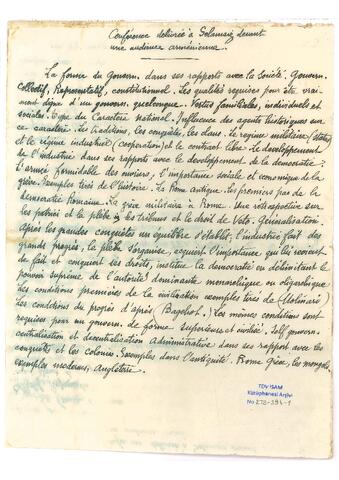 Conférence délivrée à Selamaiz devant
une audience arménienne.
La forme du Gouvern. dans ses rapports avec la Société. Gouvern.
Collectif, Représentatif, constitutionnel. Les qualités requises pour être vrai-
ment digne d'un gouvern. quelconque. Vertus familiales, individuels et
sociales. Type du Caractère national. Influence des agents historiques sur
ce caractère. Les traditions, les conquêtes, les clans. Le régime militaire (status)
et le régime industriel (coopération) et le contrat libre. Le développement
de l'industrie dans ses rapports avec le développement de la démocratie.
L'armée formidable des ouvriers, l'importance sociale et économique de la
grève. Exemples tirés de l'histoire. La Rome antique. Les premiers pas de la
démocratie romaine. La grève militaire à Rome. Une rétrospective sur
les patriciens et la plèbe, les tribunes et le droit de Veto. Généralisation.
Après les grandes conquêtes un équilibre s'établit, l'industrie fait des
grands progrès, la plèbe s'organise, acquiert l'importance qui lui revient
de fait et conquiert ses droits, institue la démocratie en délimitant le
pouvoir suprême de l'autorité dominante monarchique ou oligarchique
les conditions premières de la civilisation exemples tirés de (Molinari)
les conditions du progrès d'après (Bagehot). Les mêmes conditions sont
requises pour un gouvern. de forme supérieure et civilisé. Self govern.
centralisation et décentralisation administrative dans ses rapport avec les
conquêtes et les colonies. Exemples dans l'antiquité. Rome, Grèce, les mongols.
exemples modernes, Angleterre.
TDV İSAM
Kütüphanesi Arşivi
No 273-194-1